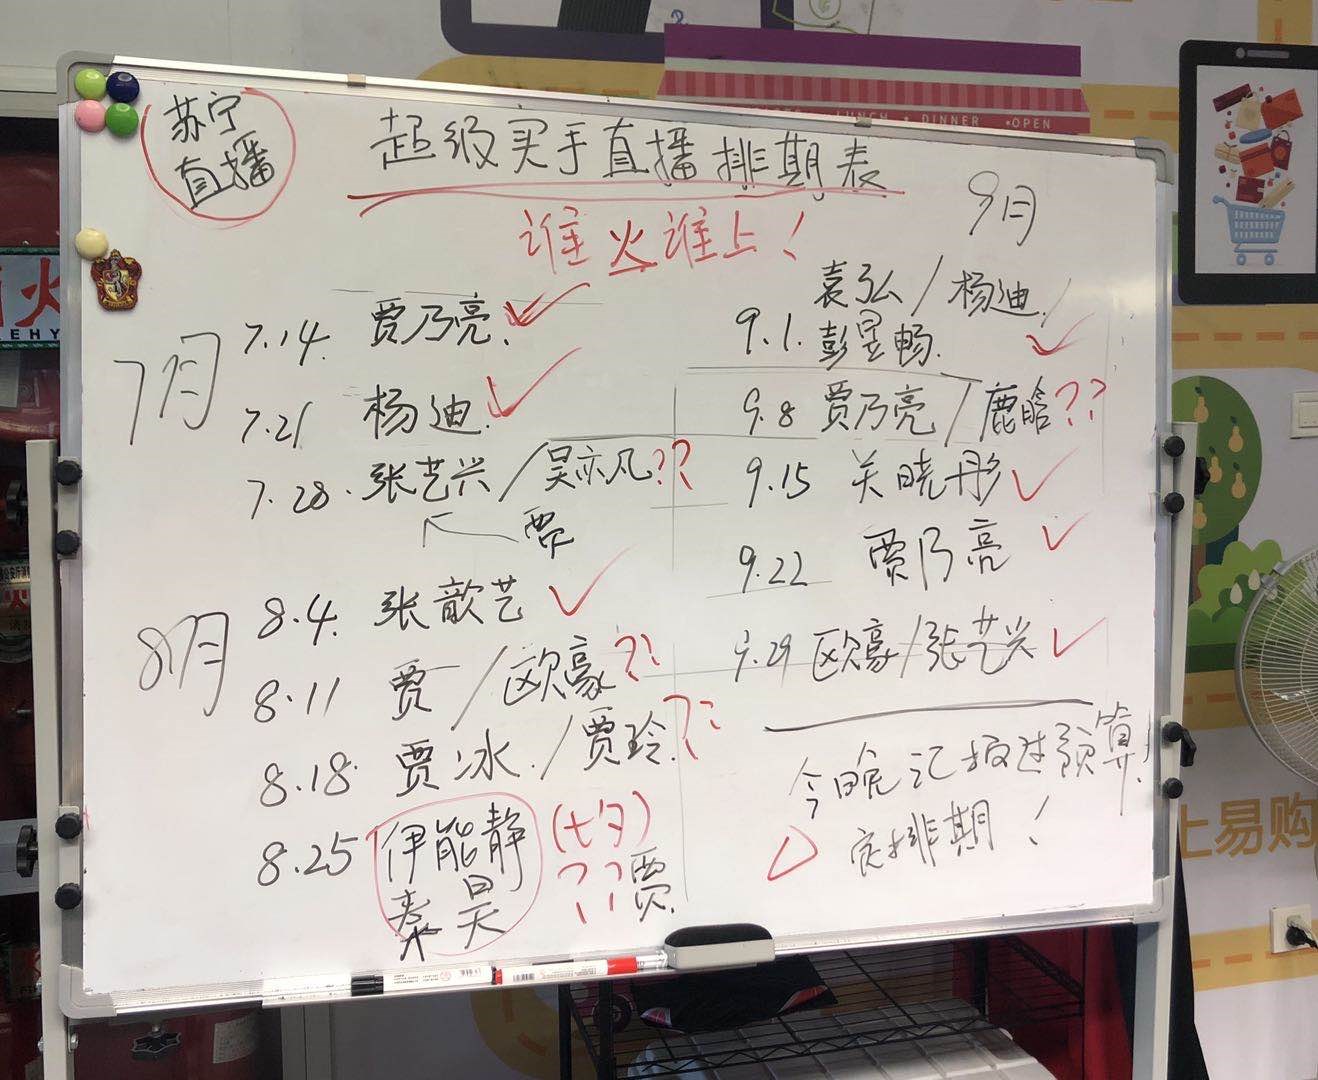 苏宁
直播
超级买手直播排期表
谁火谁上！
7月
7.14. 贾乃亮.
7.21 杨迪.
7.28. 张艺兴/吴亦凡??
贾
8月
8.4. 张歆艺
8.11 贾/欧豪??
8.18. 贾冰./贾玲??
8.25 伊能静 (七夕)
秦昊 ??贾.
9月
袁弘/杨迪/
9.1. 彭昱畅.
9.8 贾乃亮/鹿晗??
9.15 关晓彤
9.22 贾乃亮
9.29 欧豪/张艺兴
今晚汇报过预算!
定排期！
LUNCH • DINNER •OPEN
上易购
火